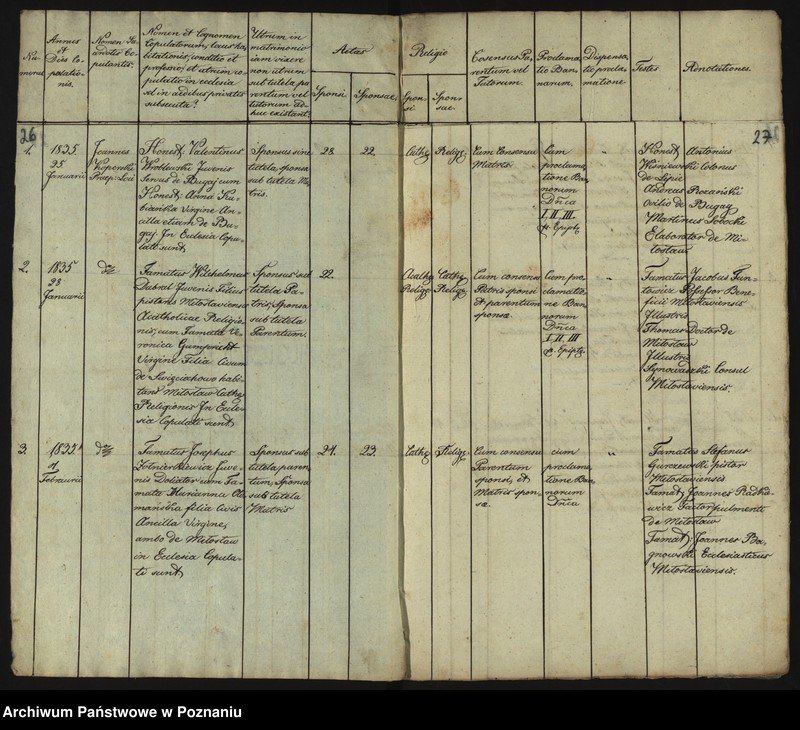 Nu-
merus
Annus
et
Dies Co-
pulatio-
nis.
Nomen Sa-
cerdotis Co-
pulantis.
Nomen et Cognomen
Copulatorum, locus ha-
bitationis, conditio et
professio, et utrum co-
pulatio in ecclesia
vel in aedibus privatis
subsecuta?
Utrum in
matrimonio
iam vixere
non utrum
sub tutela pa-
rentum vel
tutorum ad-
huc existant.
Aetas
Sponsi.
Sponsae.
Religio
Spon-
si.
Spon-
sae.
Cosensus Pa-
rentum vel
Tutorum.
Proclama-
tio Ban-
norum.
Dispensa-
tio procla-
matione
Testes.
Adnotationes.
26
27
1.
1835
25
Januarii
Joannes
Kuperski
Praep: Loci
Honest Valentinus
Wroblewski Juvenis
Servus de Bugaj cum
Honest Anna Ku-
biańska Virgine An-
cilla etiam de Bu-
gaj. In Eclesia Copu-
lati sunt
Sponsus sine
tutela, sponsa
sub tutela Ma-
tris.
28.
22.
Cathg
Religg
Cum Consensu
Matris
Cum
proclama-
tione Ban-
norum
Dnica
I. II. III.
p. Epiph
"
Honest Antonius
Wiśniewski Colonus
de Lipie
Andreas Rozański
Ovilio de Bugay
Martinus Sobocki
Elaborator de Mi-
loslaw
2.
1835
28
Januarii
Famatus Wilhelmus
Juvenis Filius
pistoris Miloslaviensis
Acatholicae Religio-
nis, cum Famata Ve-
ronica Gumprecht
Virgine Filia Civium
de habi-
tans Miloslaw Cathg
Religionis In Ecle-
sia Copulati sunt
Sponsus sub
tutela Pa-
tris, Sponsa
sub tutela
Parentum.
22.
Acathg
Religg
Cathg
Religg
Cum consensu
Patris sponsi
et parentum
sponsae.
Cum pro-
clamatio-
ne Ban-
norum
Dnica
I II III
p. Epiph
"
Famatus Jacobus Fun-
towicz Possessor Bene-
ficii Miloslaviensis
Illustris
Thomas Doctor de
Miloslaw
Illustris
Synowacki Consul
Miloslaviensis.
3.
1835
1
Februarii
Famatus Josephus
Zolnierkiewicz Juve-
nis Doliator cum Fa-
mata Marianna
filia Civis
Ancilla Virgine,
ambo de Miloslaw
in Eclesia Copula-
ti sunt
Sponsus sub
tutela paren-
tum, Sponsa
sub tutela
Matris
24.
23.
Cathg
Religg
Cum Consensu
Parentum
sponsi, et
Matris spon-
sae.
cum
proclama-
tione Ban-
norum
Dnica
"
Famatus Stefanus
Gurzewski pistor
Miloslaviensis
Famat Joannes Radkie-
wicz Factor pulmenti
de Miloslaw
Famat Joannes Ba-
gnowski Ecclesiasticus
Miloslaviensis.
Archiwum Państwowe w Poznaniu